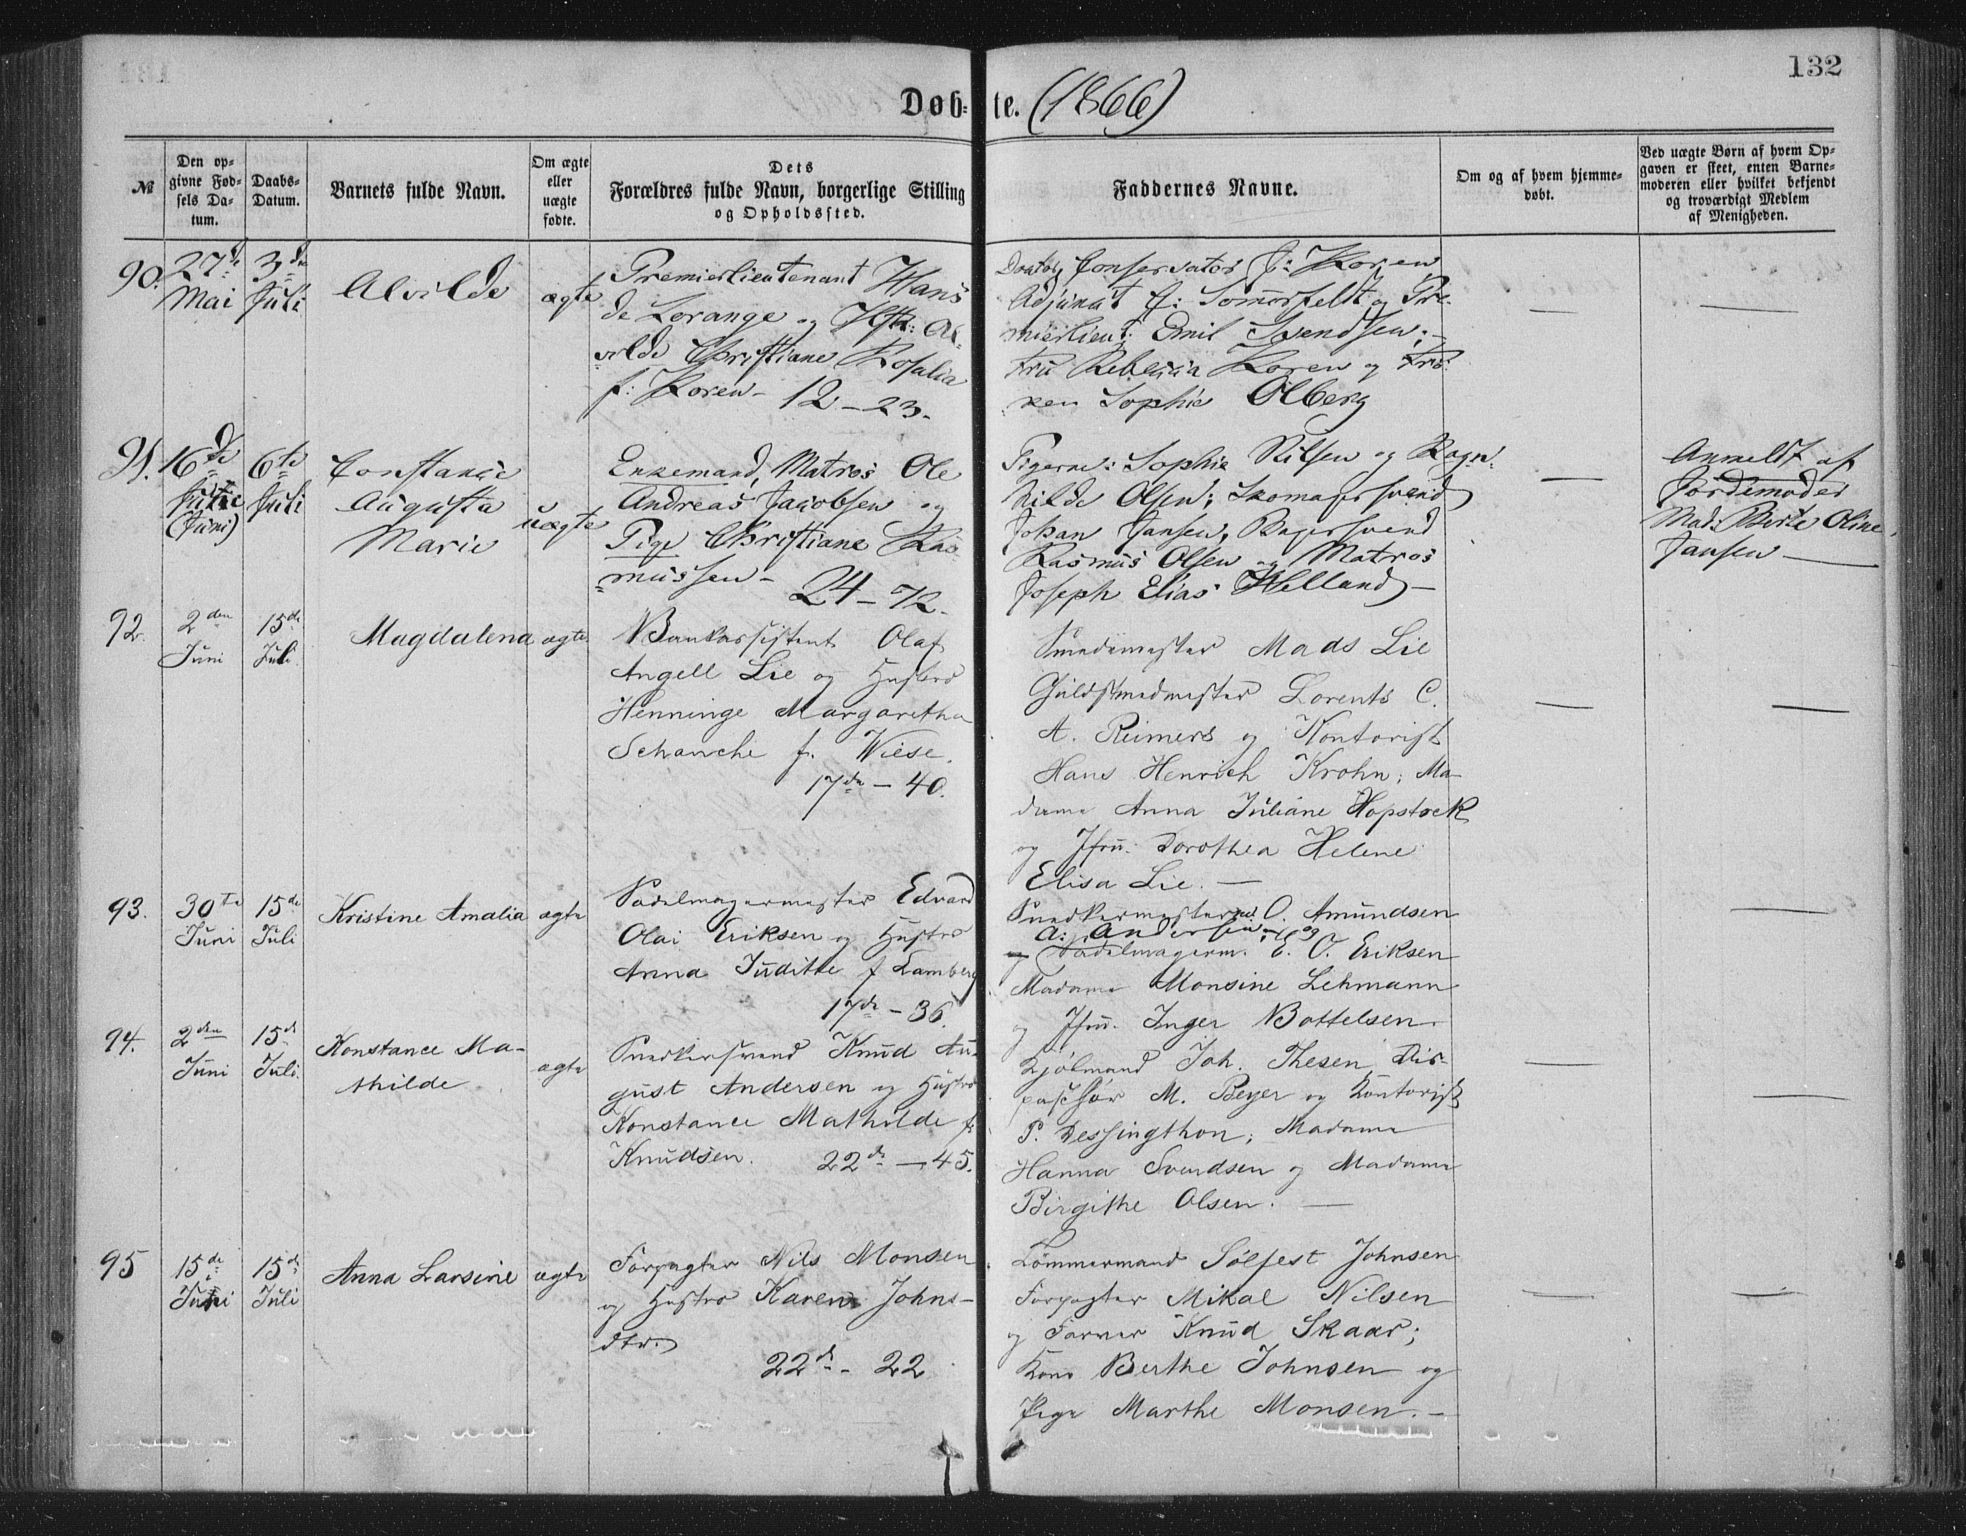 132
Døb= te. (1866)
№
Den op=
givne Fød=
sels Da=
tum.
Daabs=
Datum.
Barnets fulde Navn.
Om ægte
eller
uægte
fødte.
Dets
Forældres fulde Navn, borgerlige Stilling
og Opholdssted.
Faddernes Navne.
Om og af hvem hjemme=
døbt.
Ved uægte Børn af hvem Op=
gaven er skeet, enten Barne=
moderen eller hvilket bekjendt
og troværdigt Medlem
af Menigheden.
90.
27de
Mai
3die
Juli
Alvilde
ægte
Premierlieutenant Hans
de Lorange og Hstr: Al=
vilde Christiane Rosalia
f: Koren - 12 - 23.
Conservator J: Koren
Adjunct C: Sommerfeldt og Pre=
mierlieut: Emil Svendsen; -
Fru Rebecca Koren og Frö=
ken Sophie Olberg
91.
16de
(Juni)
6te
Juli
Constance
Augusta
Marie
uægte
Enkemand, Matros Ole
Andreas Jacobsen og
Pige Christiane Ras=
mussen - 24 - 72.
Pigerne: Sophie Nilsen og Ragn=
hilde Olsen; Skomagersvend
Johan Jansen, Bagersvend
Rasmus Olsen og Matros
Joseph Elias Helland -
Anmeldt af
Jordemoder
Mad: Berte Oline
Jansen -
92.
2den
Juni
15de
Juli
Magdalena
ægte
Bankassistent Olaf
Angell Lie og Hustro
Henninge Margaretha
Schanche f. Wiese.
17de - 40.
Smedemester Mads Lie
Guldsmedmester Lorents C.
A. Reimers og Kontorist
Hans Henrich Krohn; Ma-
dame Anna Juliane Hopstock
og Jfru. Dorothea Helene
Elisa Lie. -
93.
30te
Juni
15de
Juli
Kristine Amalia
ægte
Sadelmagermester Edvard
Olai Eriksen og Hustro
Anna Juditte f Lamberg
17de - 36.
Snedkermester O. Amundsen
A: Andersen og
og Sadelmagerm. E. O. Eriksen
Madame Monsine Lehmann
og Jfru. Inger Bottelsen.
94.
2den
Juni
15de
Juli.
Konstance Ma-
thilde
ægte
Snedkersvend Knud Au-
gust Andersen og Hustro
Konstance Mathilde f.
Knudsen. 22de - 45.
Kjølmand Joh. Thesen, Dis-
paschør M. Beyer og Kontorist
P. Dessingthon; Madame
Hanna Svendsen og Madame
Birgithe Olsen. -
95
15de
Juni
15de
Juli
Anna Larsine
ægte
Forpagter Nils Monsen
og Hustro Karen Johns-
dtr.
22de - 22
Tömmermand Sölfest Johnsen
Forpagter Mikal Nilsen
og Farver Knud Skaar;
Kone Berthe Johnsen og
Pige Marthe Monsen. -